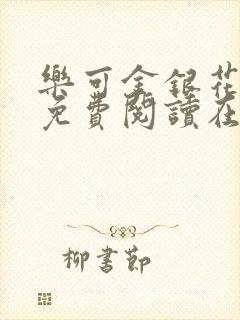 樂可金銀花
免費閱讀在
柳書節